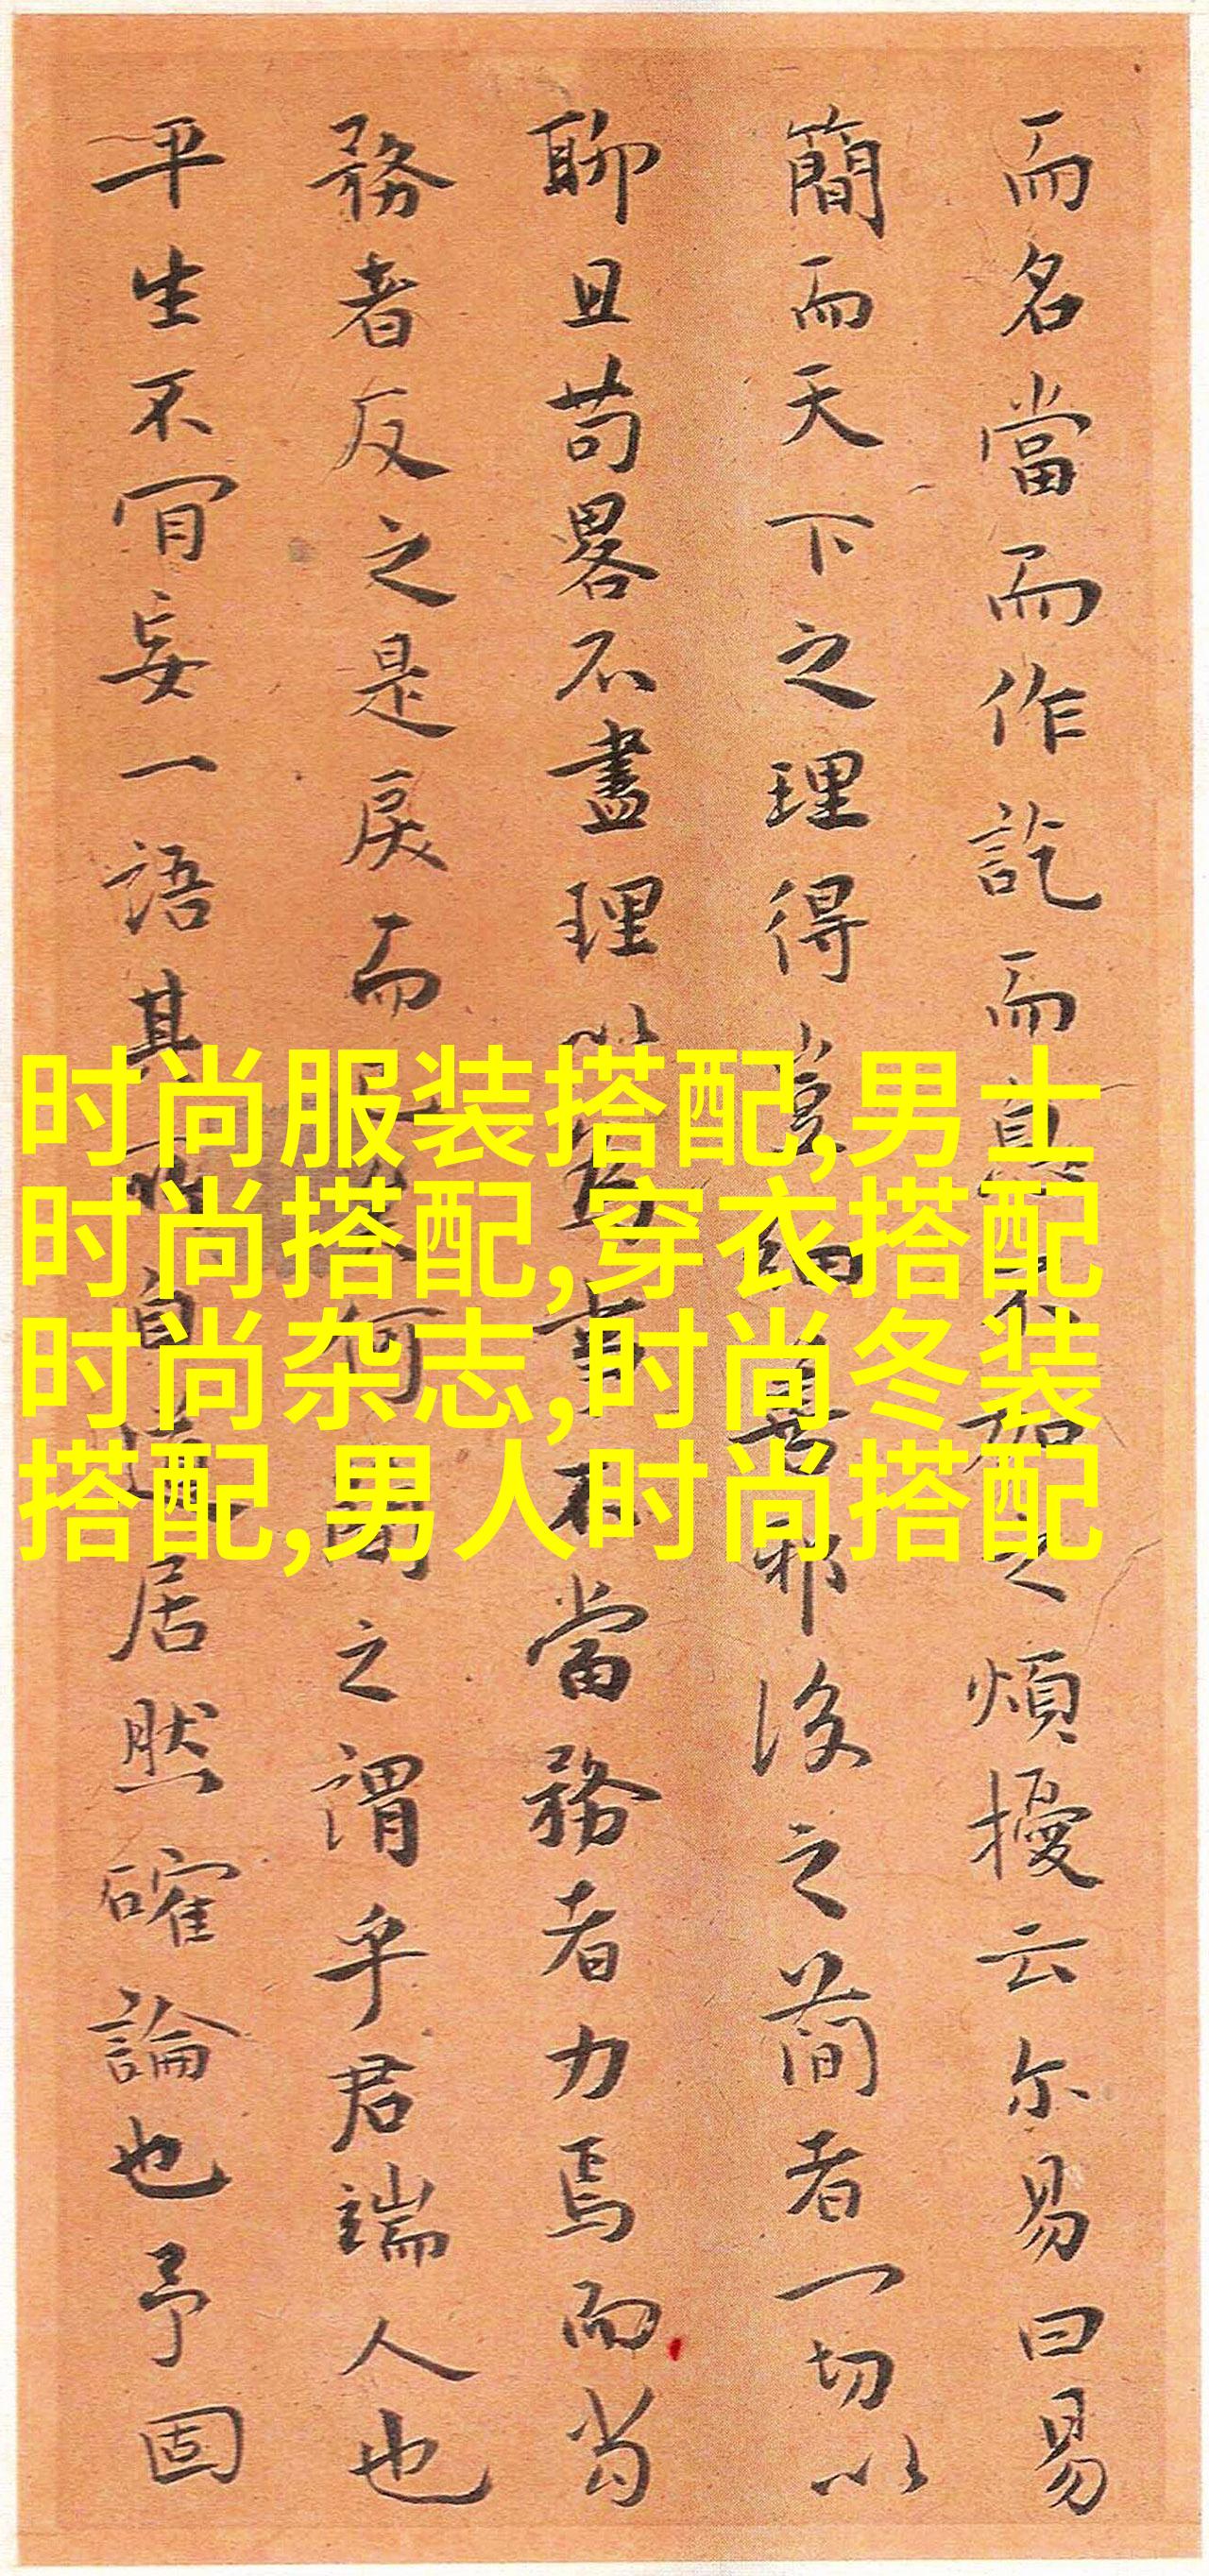 而名當而作訖而不之煩擾云尔易曰易
簡而天下之理得善邪後之簡者一切以
聊且苟畧不盡理以為事本當務者力焉而
務者反之是戾而何簡之謂乎君端人也
平生不肎妄一語其所自居然確論也予固
时尚服装搭配,男士
时尚搭配,穿衣搭配
时尚杂志,时尚冬装
搭配,男人时尚搭配